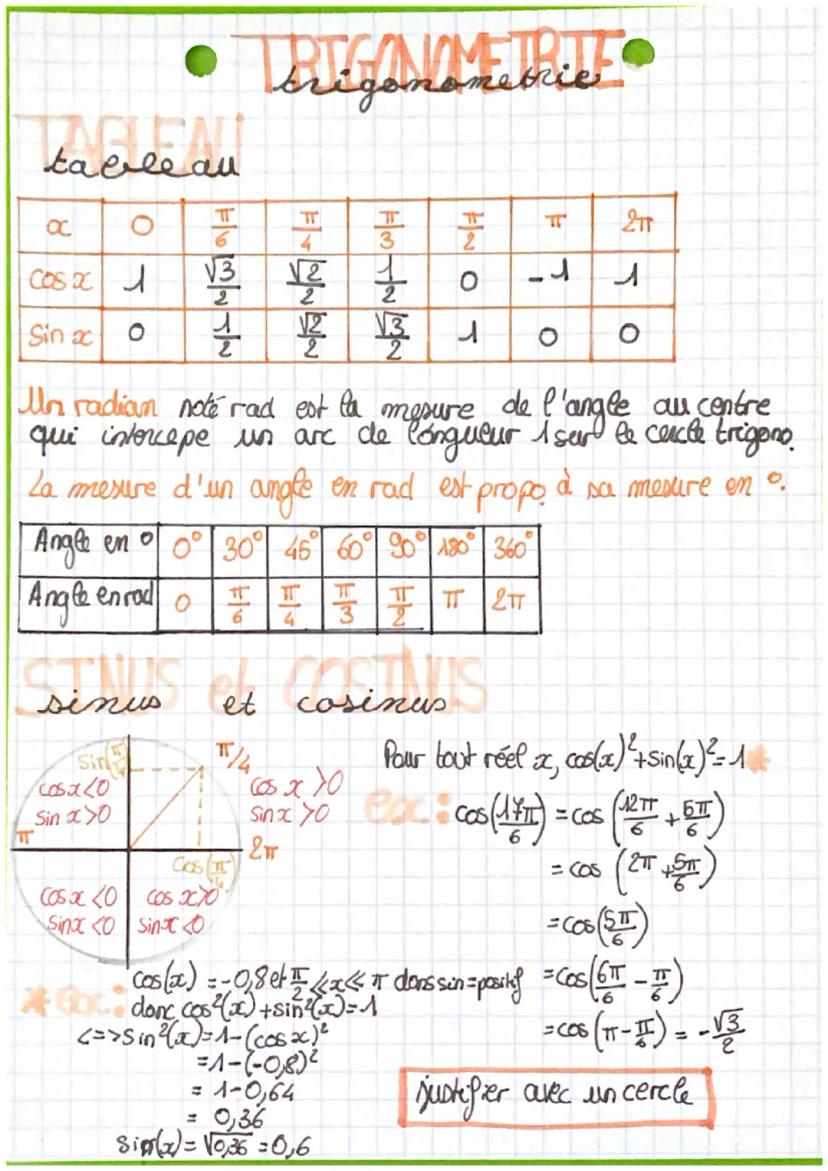 TRIGONOMETRIE
trigonometrie
TABLEAU
tableau
x 0 π/6 π/4 π/3 π/2 π 2π
cos x 1 √3/2 √2/2 1/2 0 -1 1
Sin x 0 1/2 √2/2 √3/2 1 0 0
Un radian noté rad est la mesure de l'angle au centre
qui intercepe un arc de longueur 1 sur le cercle trigono.
La mesure d'un angle en rad est propo. à sa mesure en °.
Angle en ° 0° 30° 45° 60° 90° 180° 360°
Angle en rad 0 π/6 π/4 π/3 π/2 π 2π
SINUS et COSINUS
sinus et cosinus
Sin(π/4) π/4
cos x <0
sin x >0
cos x >0
sin x >0
π
2π
Cos(π/4)
cos x <0
sin x <0
cos x >0
sin x <0
Pour tout réel x, cos(x)²+sin(x)²=1 *
exc : cos(17π/6) = cos (12π/6 + 5π/6)
= cos (2π + 5π/6)
= cos(5π/6)
= cos(6π/6 - π/6)
= cos(π - π/6) = -√3/2
* exc : cos(x) = -0,8 et π/2 ⩽ x ⩽ π dans sin = positif
donc cos²(x) + sin²(x) = 1
<=> Sin²(x) = 1-(cos x)²
= 1-(-0,8)²
= 1-0,64
= 0,36
Sin(x) = √0,36 = 0,6
justifier avec un cercle